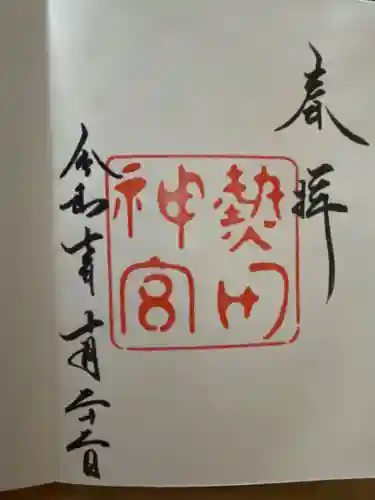 奉拝
熱田
神宮
令和元年十月二十二日